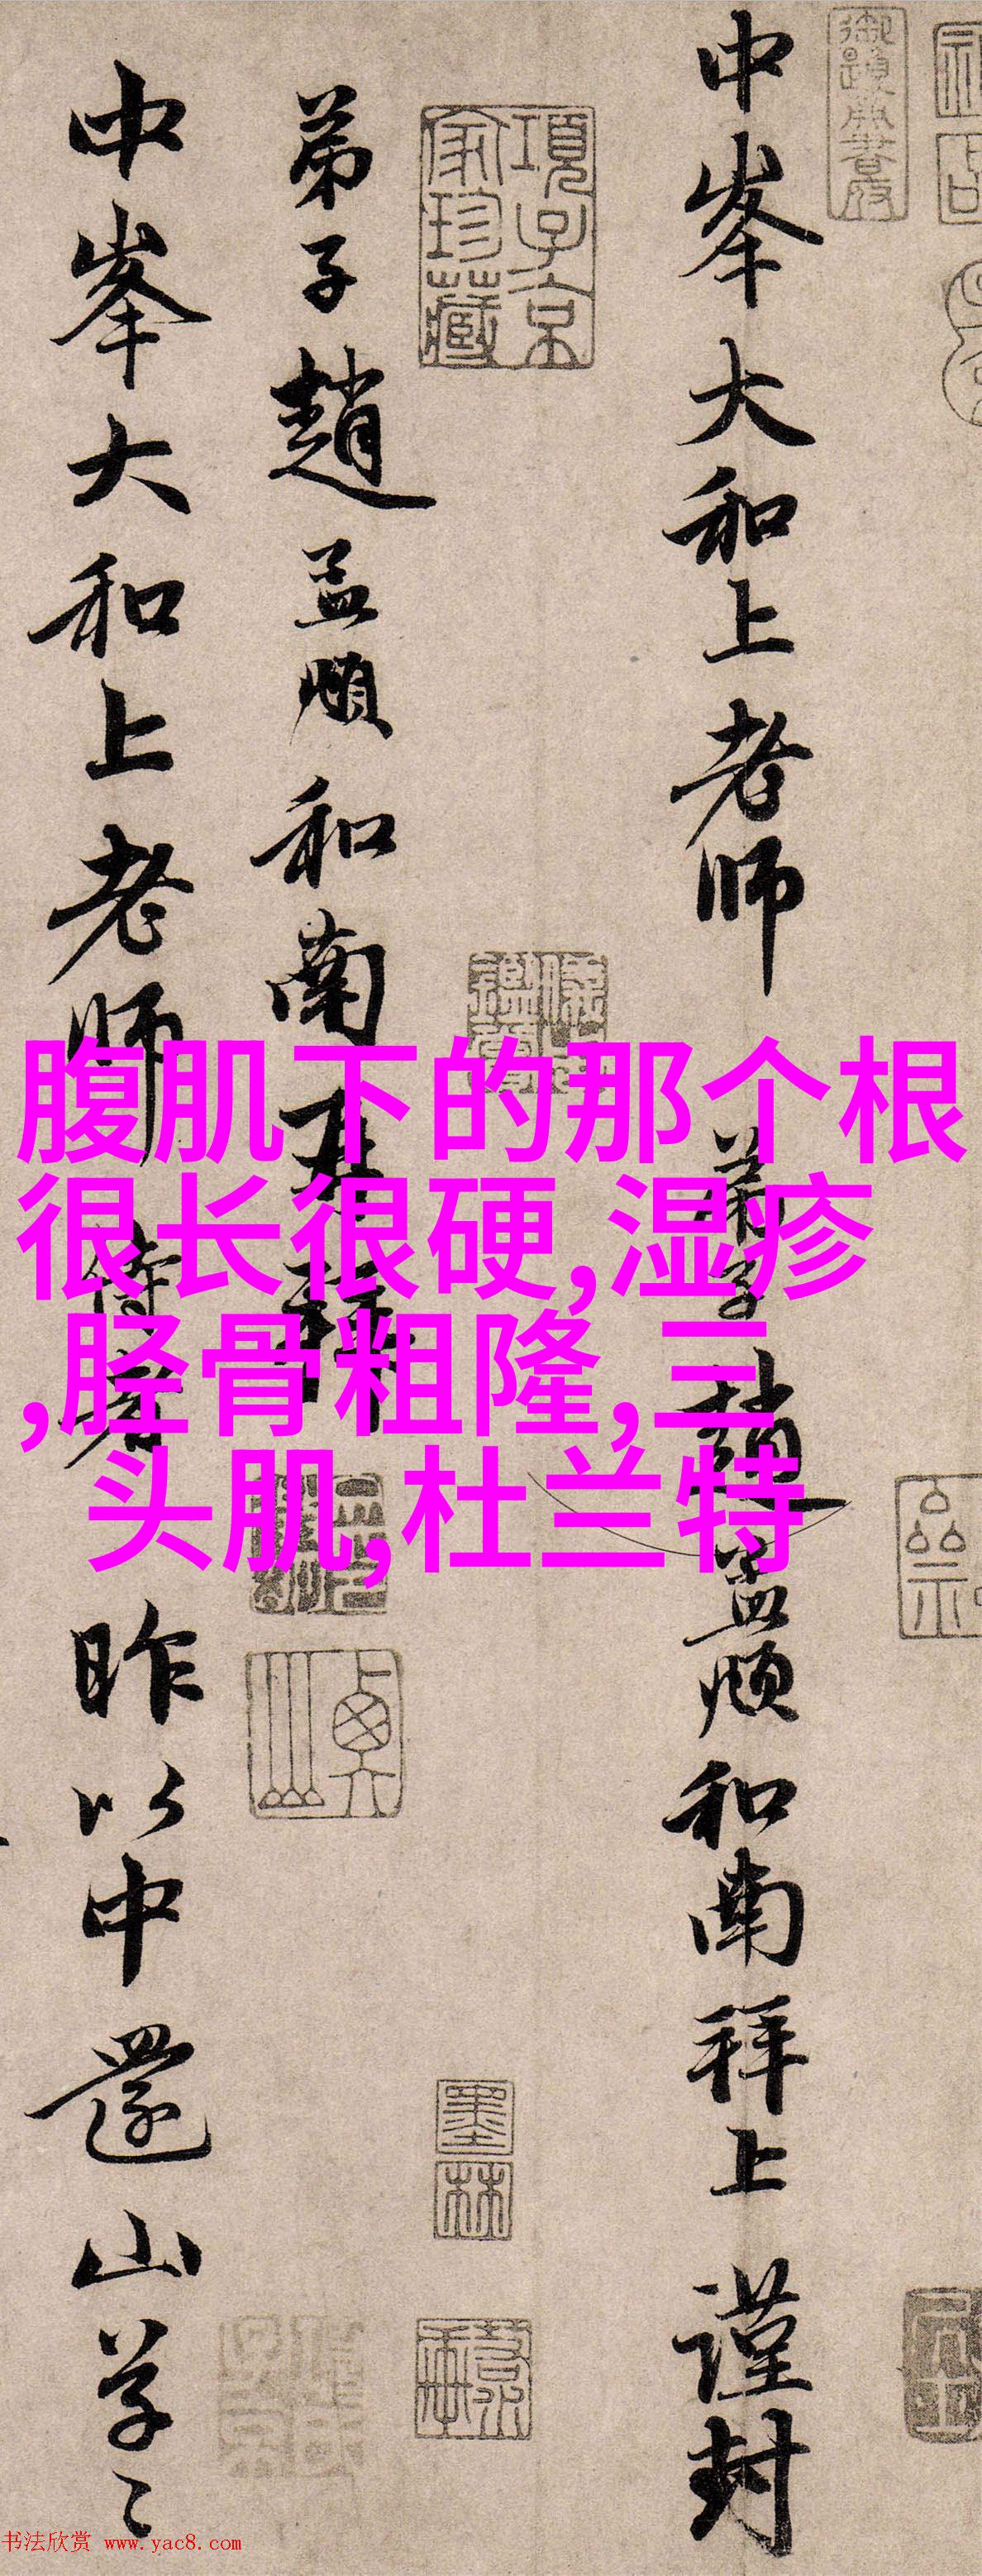 中峯大和上老师 弟子趙孟頫和南拜上 謹封
項子京
家珍藏
弟子趙孟頫和南再拜
中峯大和上老师 侍者 昨以中還山草〻
墨
林
腹肌下的那个根
很长很硬,湿疹
,胫骨粗隆,三
头肌,杜兰特
书法欣赏 www.yac8.com